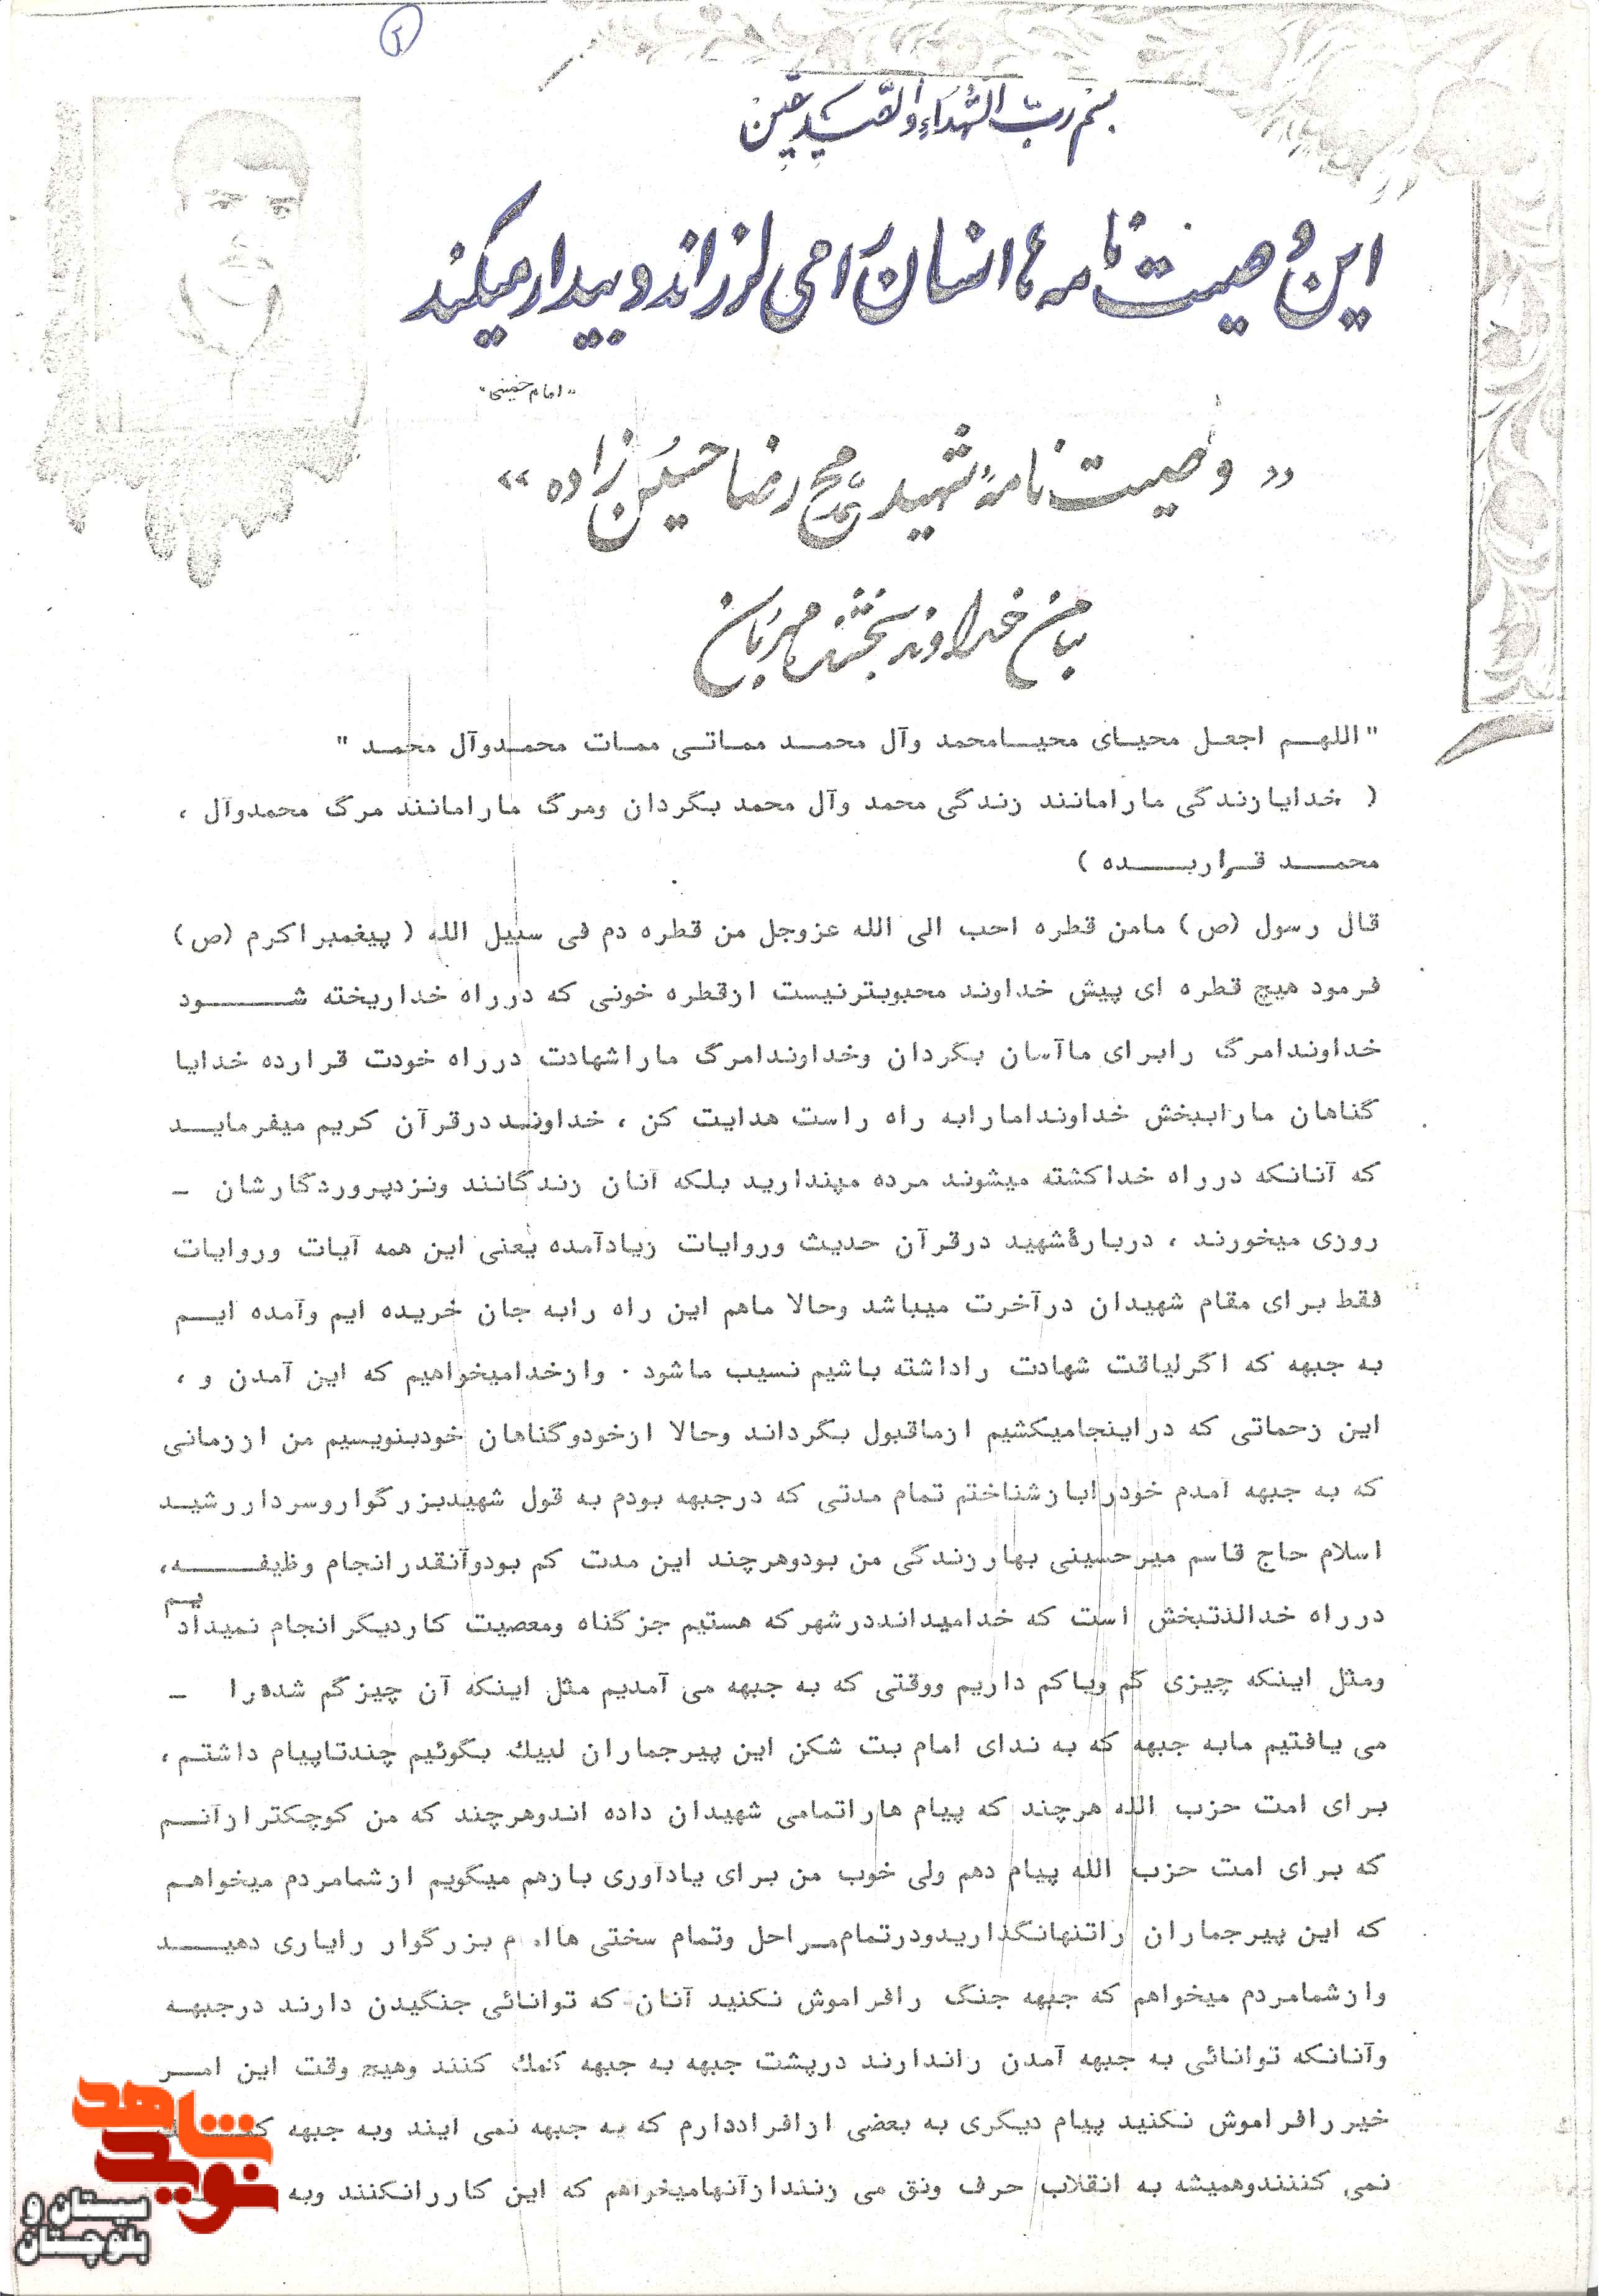 ۲
بسم ربّ الشهداء والصدیقین
این وصیت نامه ها انسان را می لرزاند و بیدار میکند
"امام خمینی"
« وصیت نامهٔ شهید محمد رضا حسین زاده »
بنام خداوند بخشنده مهربان
" اللهم اجعل محیای محیامحمد وآل محمد مماتی ممات محمدوآل محمد "
( خدایازندگی مارامانند زندگی محمد وآل محمد بگردان ومرگ مارامانند مرگ محمدوآل ،
محمد قراربده )
قال رسول (ص) مامن قطره احب الی الله عزوجل من قطره دم فی سبیل الله ( پیغمبراکرم (ص)
فرمود هیچ قطره ای پیش خداوند محبوبترنیست ازقطره خونی که درراه خداریخته شود
خداوندامرگ رابرای ماآسان بگردان وخداوندامرگ ماراشهادت درراه خودت قرارده خدایا
گناهان ماراببخش خداوندامارابه راه راست هدایت کن ، خداوند درقرآن کریم میفرماید
که آنانکه درراه خداکشته میشوند مرده مپندارید بلکه آنان زندگانند ونزدپروردگارشان -
روزی میخورند ، دربارهٔشهید درقرآن حدیث وروایات زیادآمده یعنی این همه آیات وروایات
فقط برای مقام شهیدان درآخرت میباشد وحالا ماهم این راه رابه جان خریده ایم وآمده ایم
به جبهه که اگرلیاقت شهادت راداشته باشیم نسیب ماشود . وازخدامیخواهیم که این آمدن و ،
این زحماتی که دراینجامیکشیم ازماقبول بگرداند وحالا ازخودوگناهان خودبنویسیم من اززمانی
که به جبهه آمدم خودرابازشناختم تمام مدتی که درجبهه بودم به قول شهیدبزرگواروسرداررشید
اسلام حاج قاسم میرحسینی بهارزندگی من بودوهرچند این مدت کم بودوآنقدرانجام وظیفه ،
درراه خدالذتبخش است که خدامیدانددرشهرکه هستیم جزگناه ومعصیت کاردیگرانجام نمیدادیم
ومثل اینکه چیزی گم ویاکم داریم ووقتی که به جبهه می آمدیم مثل اینکه آن چیزگم شده را -
می یافتیم مابه جبهه که به ندای امام بت شکن این پیرجماران لبیك بگوئیم چندتاپیام داشتم ،
برای امت حزب الله هرچند که پیام هاراتمامی شهیدان داده اندوهرچند که من کوچکترازآنم
که برای امت حزب الله پیام دهم ولی خوب من برای یادآوری بازهم میگویم ازشمامردم میخواهم
که این پیرجماران راتنهانگذاریدودرتمام مراحل وتمام سختی هاامام بزرگوار رایاری دهید
وازشمامردم میخواهم که جبهه جنگ رافراموش نکنید آنان که توانائی جنگیدن دارند درجبهه
وآنانکه توانائی به جبهه آمدن راندارند درپشت جبهه به جبهه کمك کنند وهیچ وقت این امر
خیررافراموش نکنید پیام دیگری به بعضی ازافراددارم که به جبهه نمی ایند وبه جبهه کمك
نمی کنندوهمیشه به انقلاب حرف ونق می زنندازآنهامیخراهم که این کاررانکنند وبه
نوید شاهد
سیستان و
بلوچستان